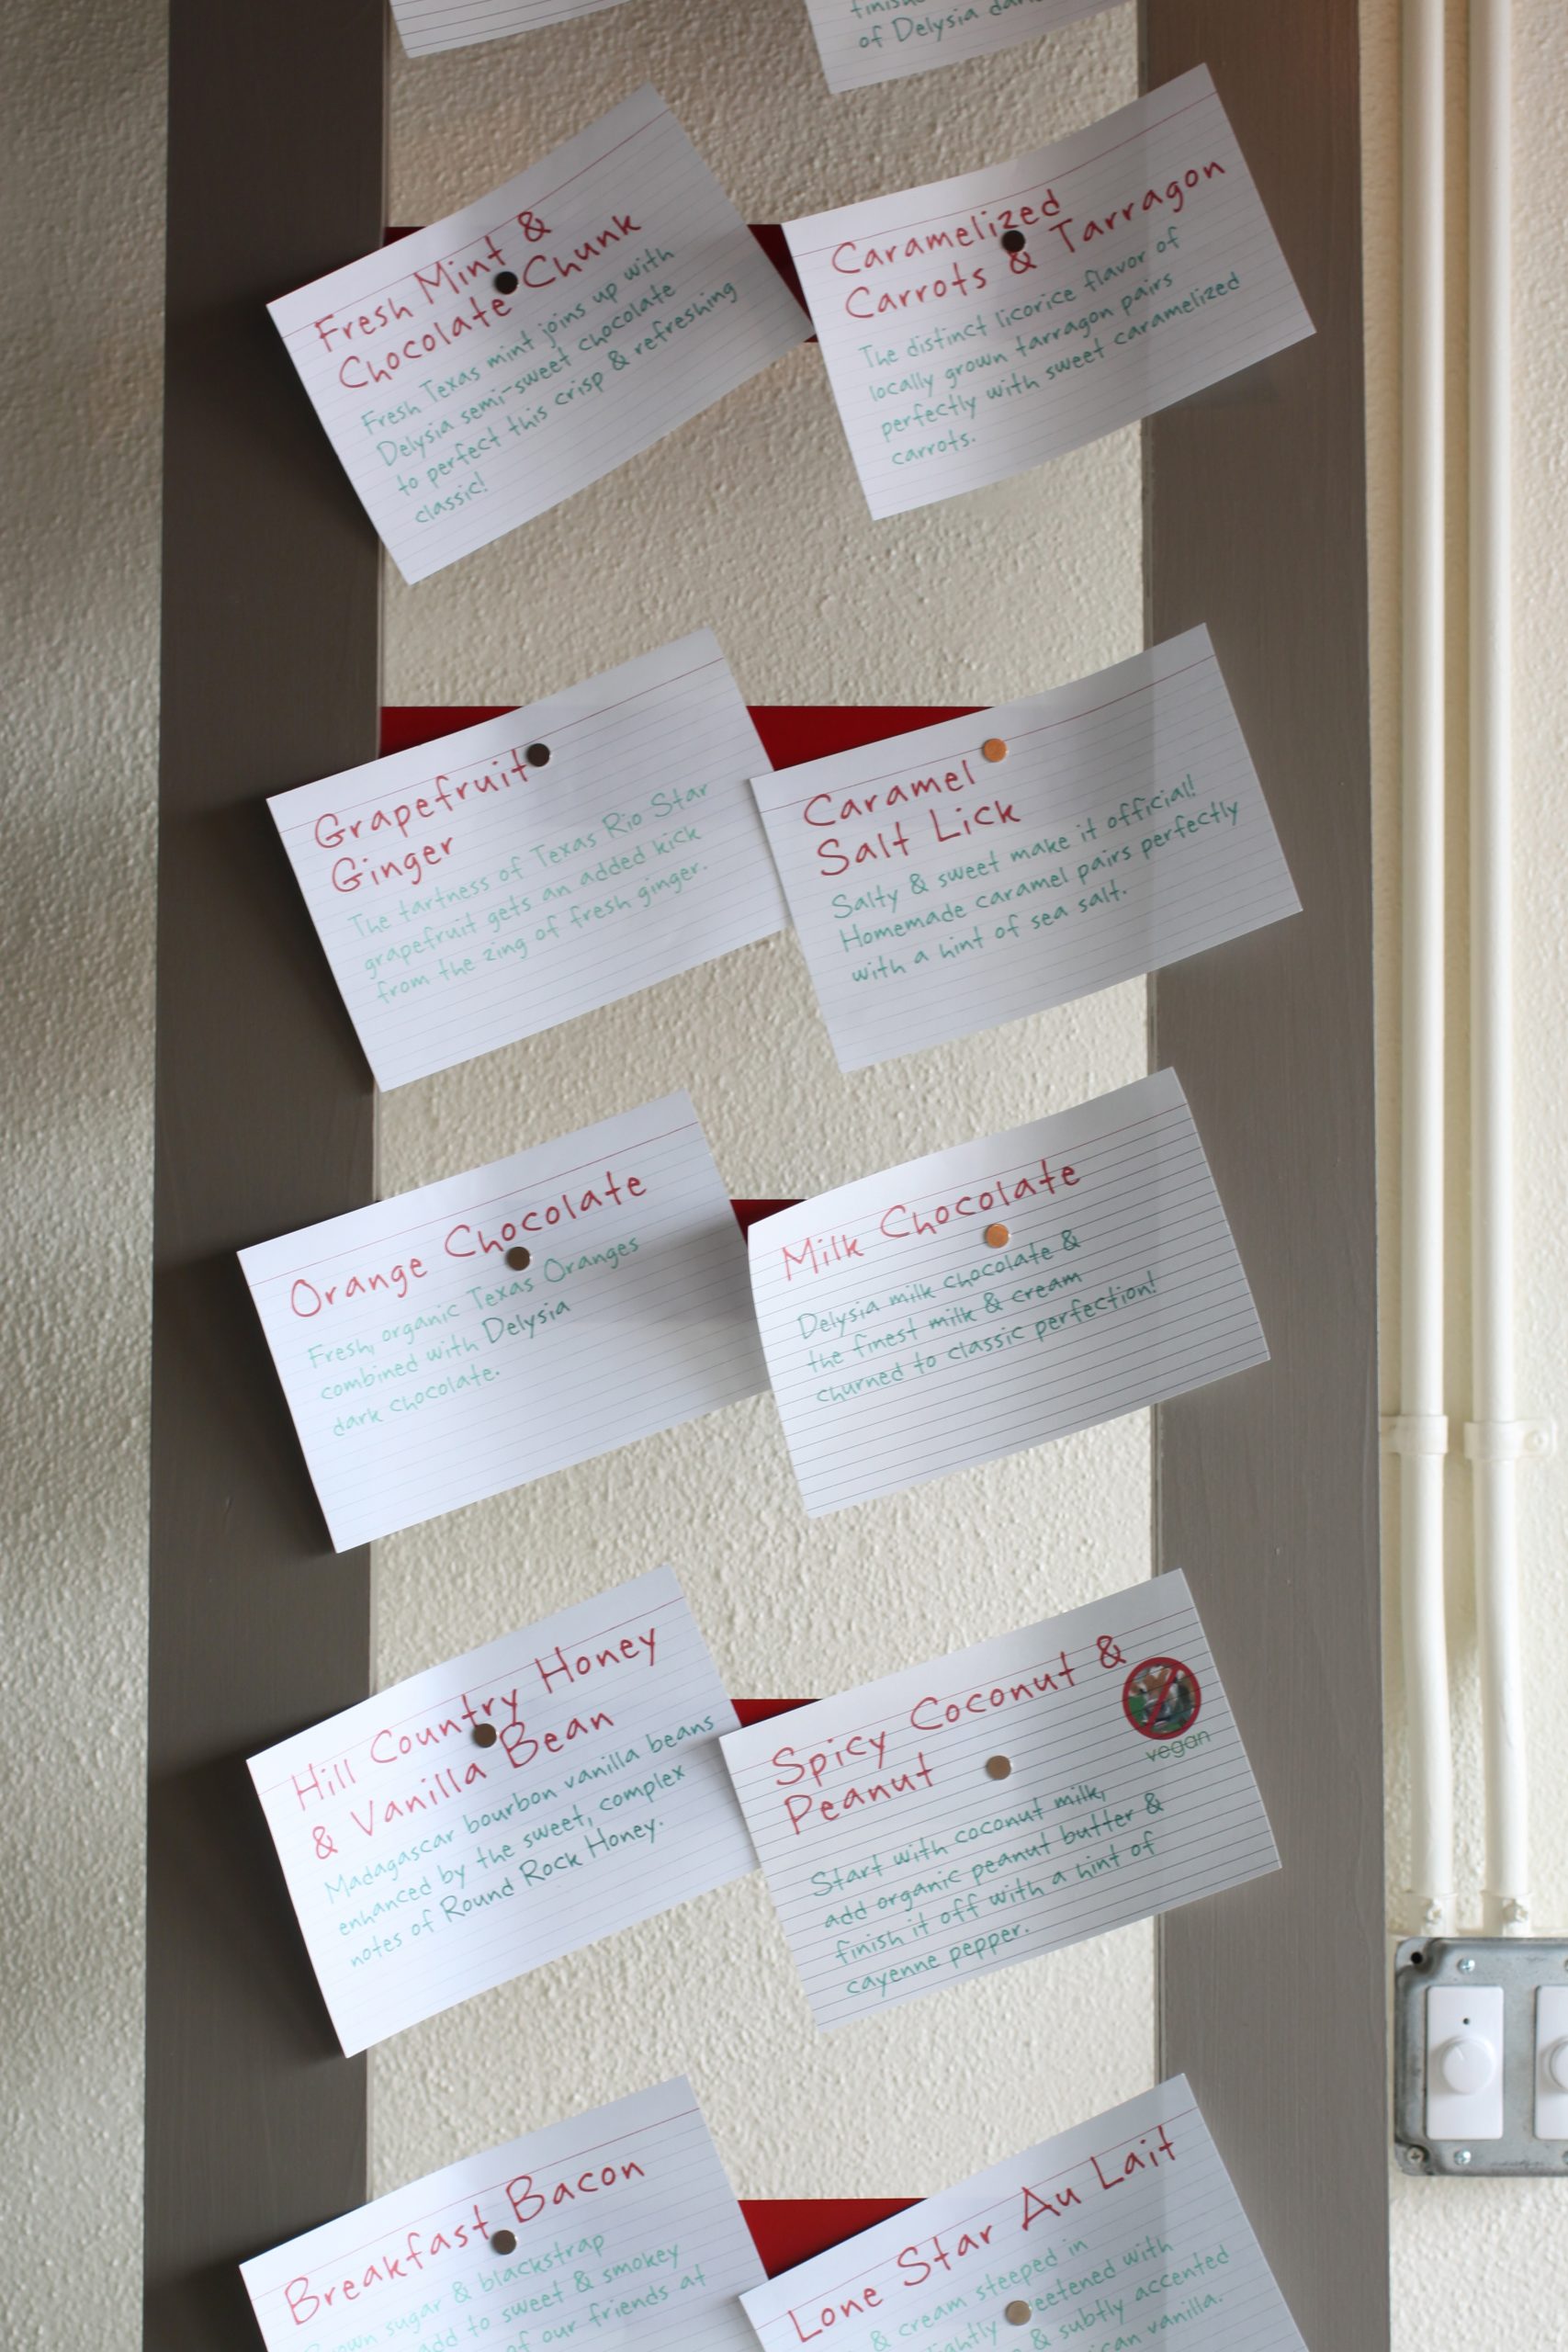 finish
of Delysia dark
Fresh Mint &
Chocolate Chunk
Fresh Texas mint joins up with
Delysia semi-sweet chocolate
to perfect this crisp & refreshing
classic!
Caramelized
Carrots & Tarragon
The distinct licorice flavor of
locally grown tarragon pairs
perfectly with sweet caramelized
carrots.
Grapefruit
Ginger
The tartness of Texas Rio Star
grapefruit gets an added kick
from the zing of fresh ginger.
Caramel
Salt Lick
Salty & sweet make it official!
Homemade caramel pairs perfectly
with a hint of sea salt.
Orange Chocolate
Fresh, organic Texas Oranges
combined with Delysia
dark chocolate.
Milk Chocolate
Delysia milk chocolate &
the finest milk & cream
churned to classic perfection!
Hill Country Honey
& Vanilla Bean
Madagascar bourbon vanilla beans
enhanced by the sweet, complex
notes of Round Rock Honey.
Spicy Coconut &
Peanut
vegan
Start with coconut milk,
add organic peanut butter &
finish it off with a hint of
cayenne pepper.
Breakfast Bacon
Brown sugar & blackstrap
add to sweet & smokey
of our friends at
Lone Star Au Lait
& cream steeped in
lightly sweetened with
& subtly accented
vanilla.